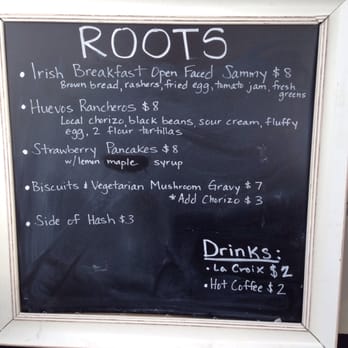 ROOTS
• Irish Breakfast Open Faced Sammy $8
Brown bread, rashers, fried egg, tomato jam, fresh
greens
• Huevos Rancheros $8
Local chorizo, black beans, sour cream, fluffy
egg, 2 flour tortillas
• Strawberry Pancakes $8
w/lemon maple syrup
• Biscuits & Vegetarian Mushroom Gravy $7
*Add Chorizo $3
• Side of Hash $3
Drinks:
• La Croix $2
• Hot Coffee $2